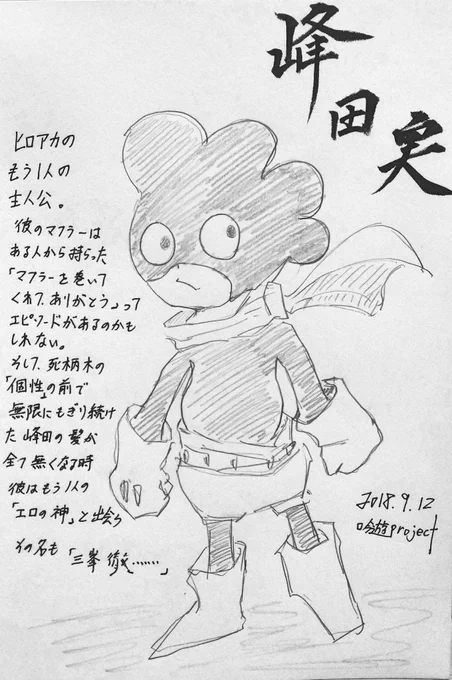 峰田実
ヒロアカの
もう1人の
主人公。
彼のマフラーは
ある人から持らった
「マフラーを巻いて
くれて、ありがとう」って
エピソードがあるのかも
しれない。
そして、死柄木の
「個性」の前で
無限にもぎり続け
た峰田の髪が
全て無くなる時
彼はもう1人の
「エロの神」と出会う
その名も「三峯徹……」
2018.9.12
吟遊project